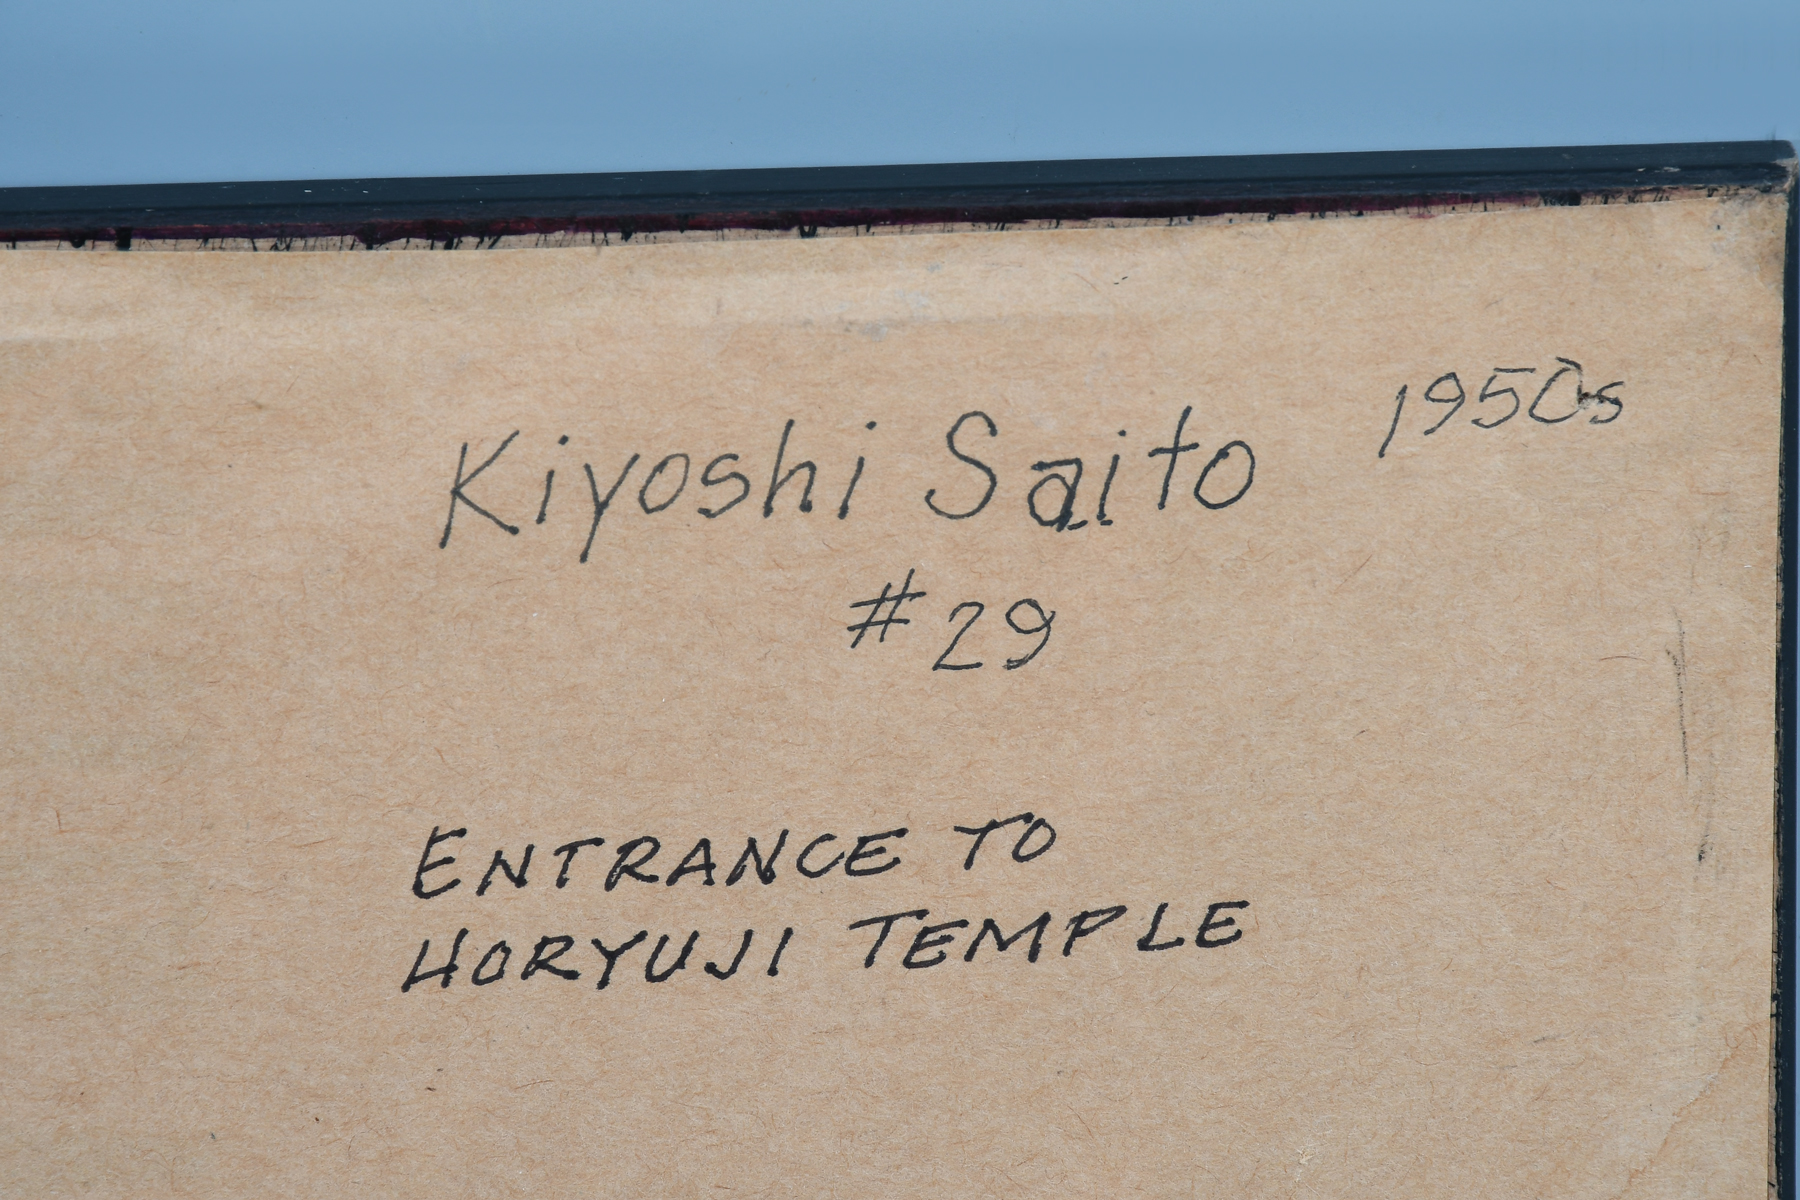 Kiyoshi Saito 1950s
#29
ENTRANCE TO
HORYUJI TEMPLE